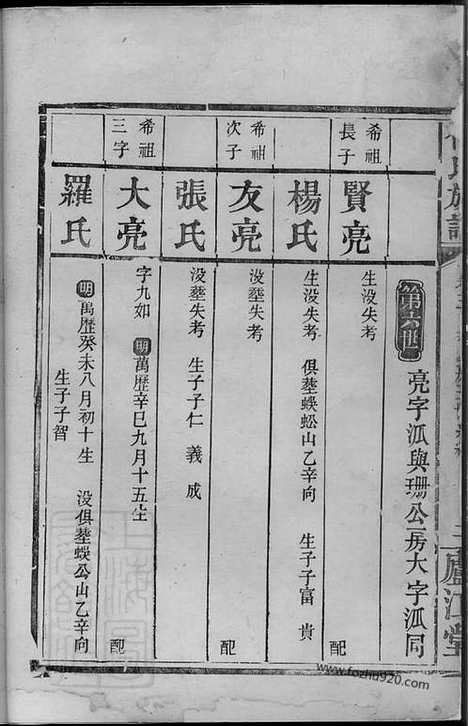 第六世
亮字派與珊公一房大字派同
希祖長子
賢亮
生没失考
配
楊氏
生没失考 俱塟蜈蚣山乙辛向 生子子富 貴
希祖次子
友亮
没塟失考
配
張氏
没塟失考 生子子仁 義 成
希祖三字
大亮
字九如 明萬歷辛巳九月十五生
配
羅氏
明萬歷癸未八月初十生 没俱塟蜈公山乙辛向
生子子智
氏族譜
廬江堂
www.fozhu920.com